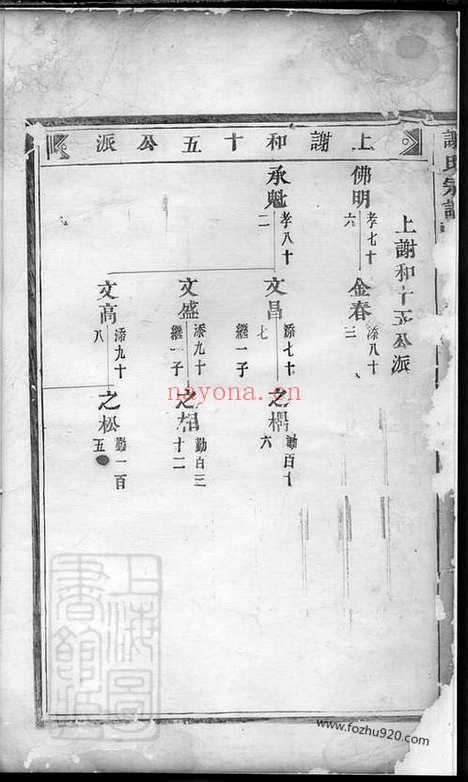 謝氏宗譜
上謝和十五公派
上謝和十五公派
佛明
孝七十六
金春
添八十三
承魁
孝八十二
文昌
添七十七
繼一子
之楫
勤百十六
文盛
添九十
繼一子
之相
勤百三十二
文高
添九十八
之松
勤一百五
nayona.cn
上海圖書館藏
www.fozhu920.com